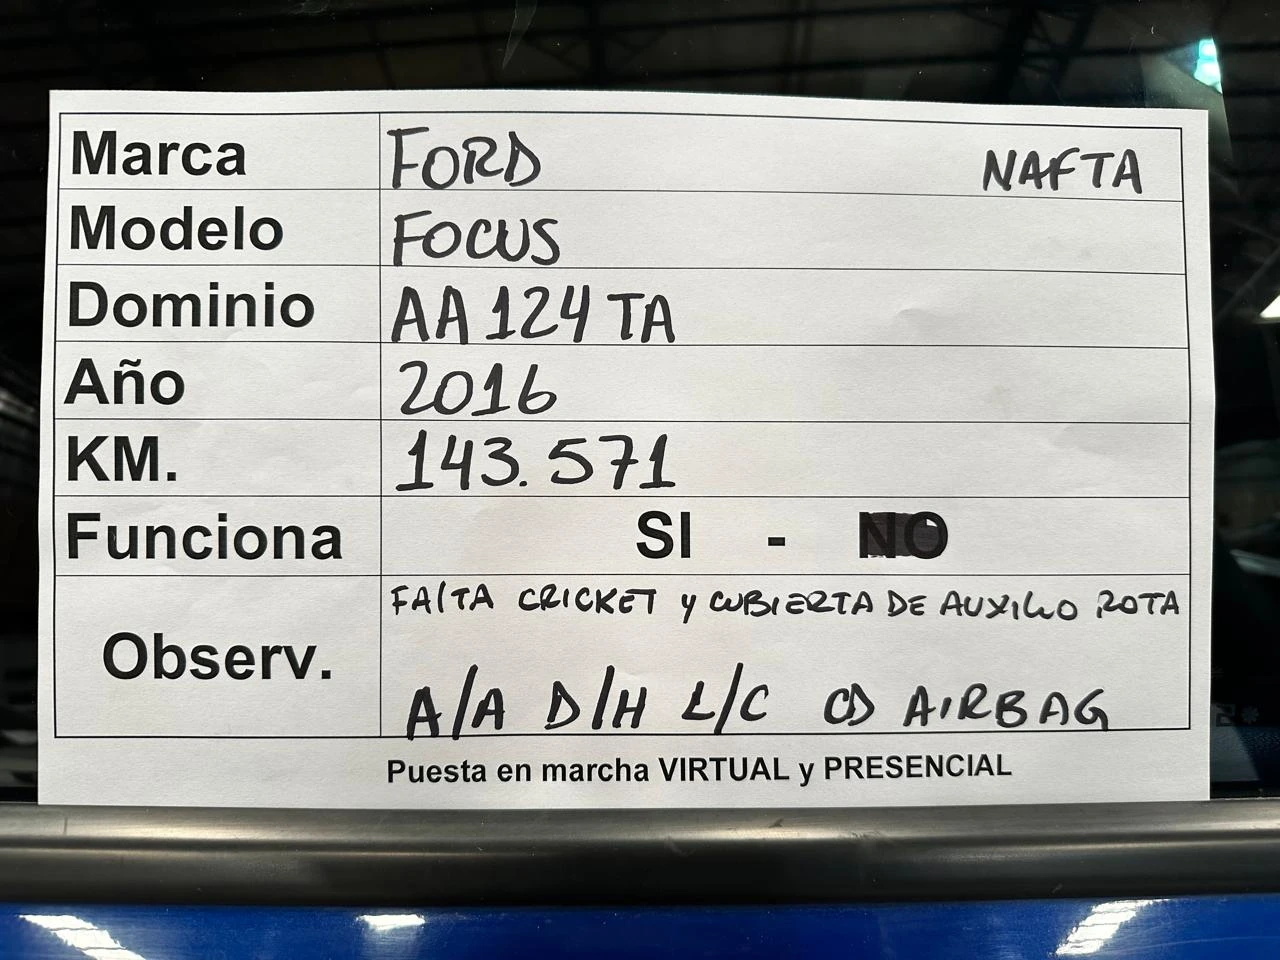 Marca FORD NAFTA
Modelo FOCUS
Dominio AA 124 TA
Año 2016
KM. 143.571
Funciona SI - NO
Observ. FALTA CRICKET Y CUBIERTA DE AUXILIO ROTA
A/A D/H L/C CD AIRBAG
Puesta en marcha VIRTUAL y PRESENCIAL